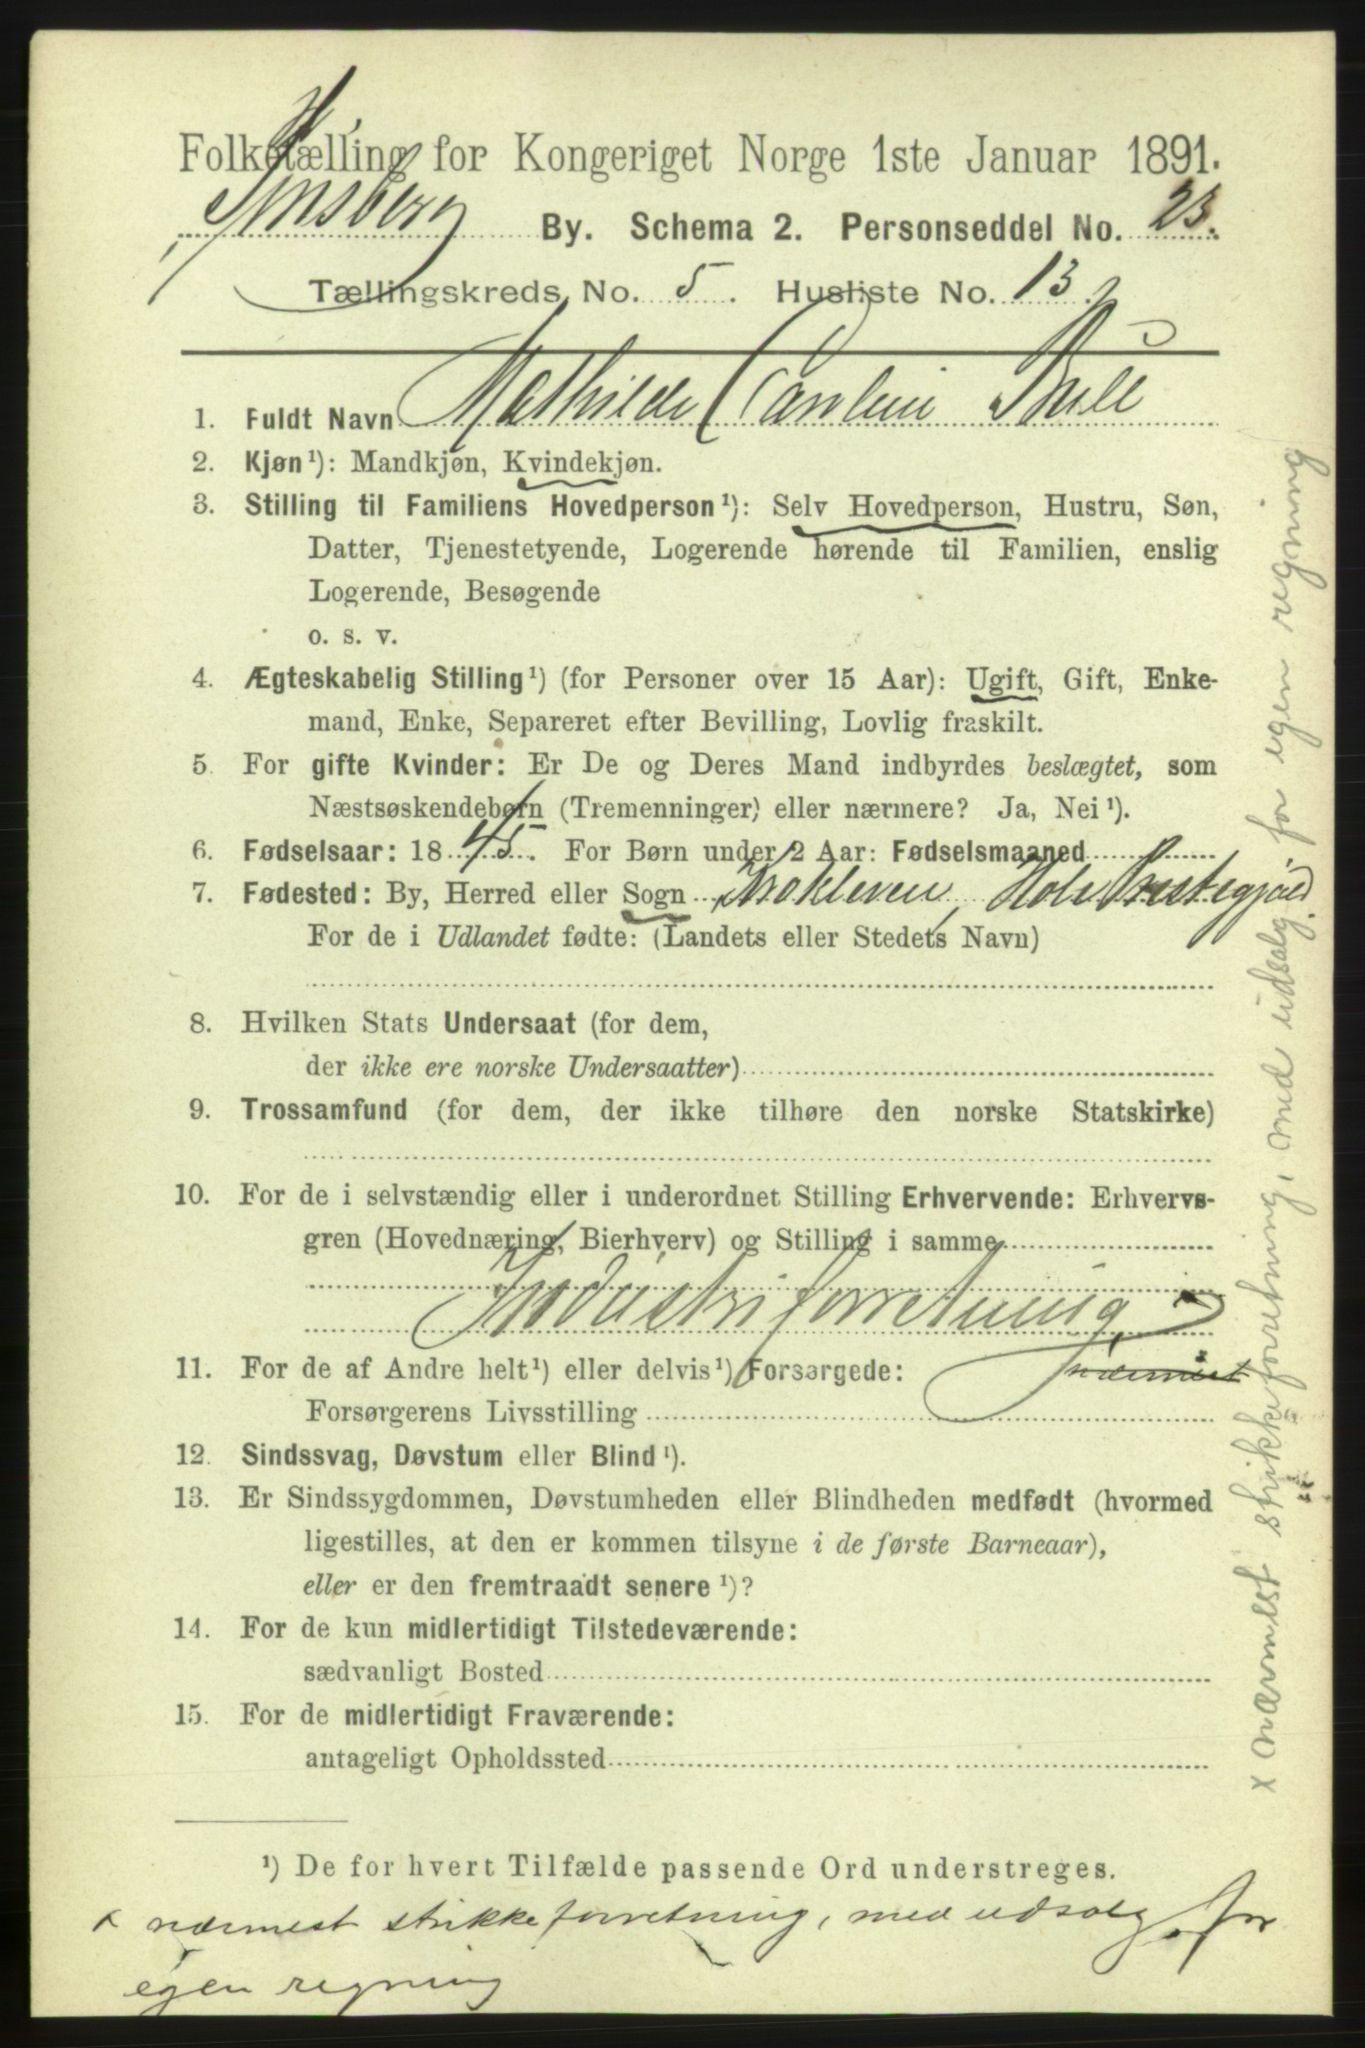 Folketælling for Kongeriget Norge 1ste Januar 1891.
Tønsberg By. Schema 2. Personseddel No. 23.
Tællingskreds No. 5. Husliste No. 13.
1. Fuldt Navn Mathilde Caroline Bull
2. Kjøn¹): Mandkjøn, Kvindekjøn.
3. Stilling til Familiens Hovedperson¹): Selv Hovedperson, Hustru, Søn,
Datter, Tjenestetyende, Logerende hørende til Familien, enslig
Logerende, Besøgende
o. s. v.
4. Ægteskabelig Stilling¹) (for Personer over 15 Aar): Ugift, Gift, Enke-
mand, Enke, Separeret efter Bevilling, Lovlig fraskilt.
5. For gifte Kvinder: Er De og Deres Mand indbyrdes beslægtet, som
Næstsøskendebørn (Tremenninger) eller nærmere? Ja, Nei¹).
6. Fødselsaar: 1845. For Børn under 2 Aar: Fødselsmaaned
7. Fødested: By, Herred eller Sogn Krokleven, Hole Prestegjæld.
For de i Udlandet fødte: (Landets eller Stedets Navn)
8. Hvilken Stats Undersaat (for dem,
der ikke ere norske Undersaatter)
9. Trossamfund (for dem, der ikke tilhøre den norske Statskirke)
10. For de i selvstændig eller i underordnet Stilling Erhvervende: Erhvervs-
gren (Hovednæring, Bierhverv) og Stilling i samme
Industriforretning x
11. For de af Andre helt¹) eller delvis¹) Forsørgede: nærmest
Forsørgerens Livsstilling
12. Sindssvag, Døvstum eller Blind¹).
13. Er Sindssygdommen, Døvstumheden eller Blindheden medfødt (hvormed
ligestilles, at den er kommen tilsyne i de første Barneaar),
eller er den fremtraadt senere¹)?
14. For de kun midlertidigt Tilstedeværende:
sædvanligt Bosted
15. For de midlertidigt Fraværende:
antageligt Opholdssted
¹) De for hvert Tilfælde passende Ord understreges.
x nærmest strikkeforretning, med udsalg, for
egen regning
x nærmest strikkeforretning, med udsalg for egen regning